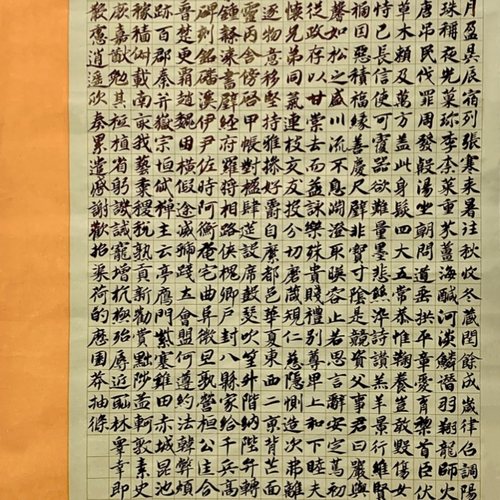 月盈昃辰宿列張寒来暑往秋收冬藏閏餘成歲律名調陽
珠稱夜光菓珍李柰菜重芥薑海鹹河淡鱗潛羽翔龍師火
唐弔民伐罪周發殷湯坐朝問道垂拱平章愛育黎首臣伏
草木賴及萬方蓋此身髮四大五常恭惟鞠養豈敢毀傷女
恃己長信使可覆器欲難量墨悲絲染詩讚羔羊景行維賢
禍因惡積福緣善慶尺璧非寶寸陰是競資父事君曰嚴與
馨如松之盛川流不息淵澄取暎容止若思言辭安定篤初
從政存以甘棠去而益詠樂殊貴賤禮別尊卑上和下睦夫
懷兄弟同氣連枝交友投分切磨箴規仁慈隱惻造次弗離
逐物意移堅持雅操好爵自縻都邑華夏東西二京背芒面
靈丙舍傍啓甲帳對楹肆筵設席鼓瑟吹笙升階納陛弁轉
鍾隸漆書壁經府羅將相路俠槐卿戶封八縣家給千兵高
碑刻銘磻溪伊尹佐時阿衡奄宅曲阜微旦孰營桓公匡合
晉楚更霸趙魏困橫假途滅虢踐土會盟何遵約法韓弊煩
跡百郡秦并嶽宗恒岱禪主云亭雁門紫塞雞田赤城昆池
稼穡俶載南畝我藝黍稷稅熟貢新勸賞黜陟孟軻敦素史
厥嘉猷勉其祗植省躬譏誡寵增抗極殆辱近恥林皋幸即
散慮逍遙欣奏累遣慼謝歡招渠荷的歷園莽抽條